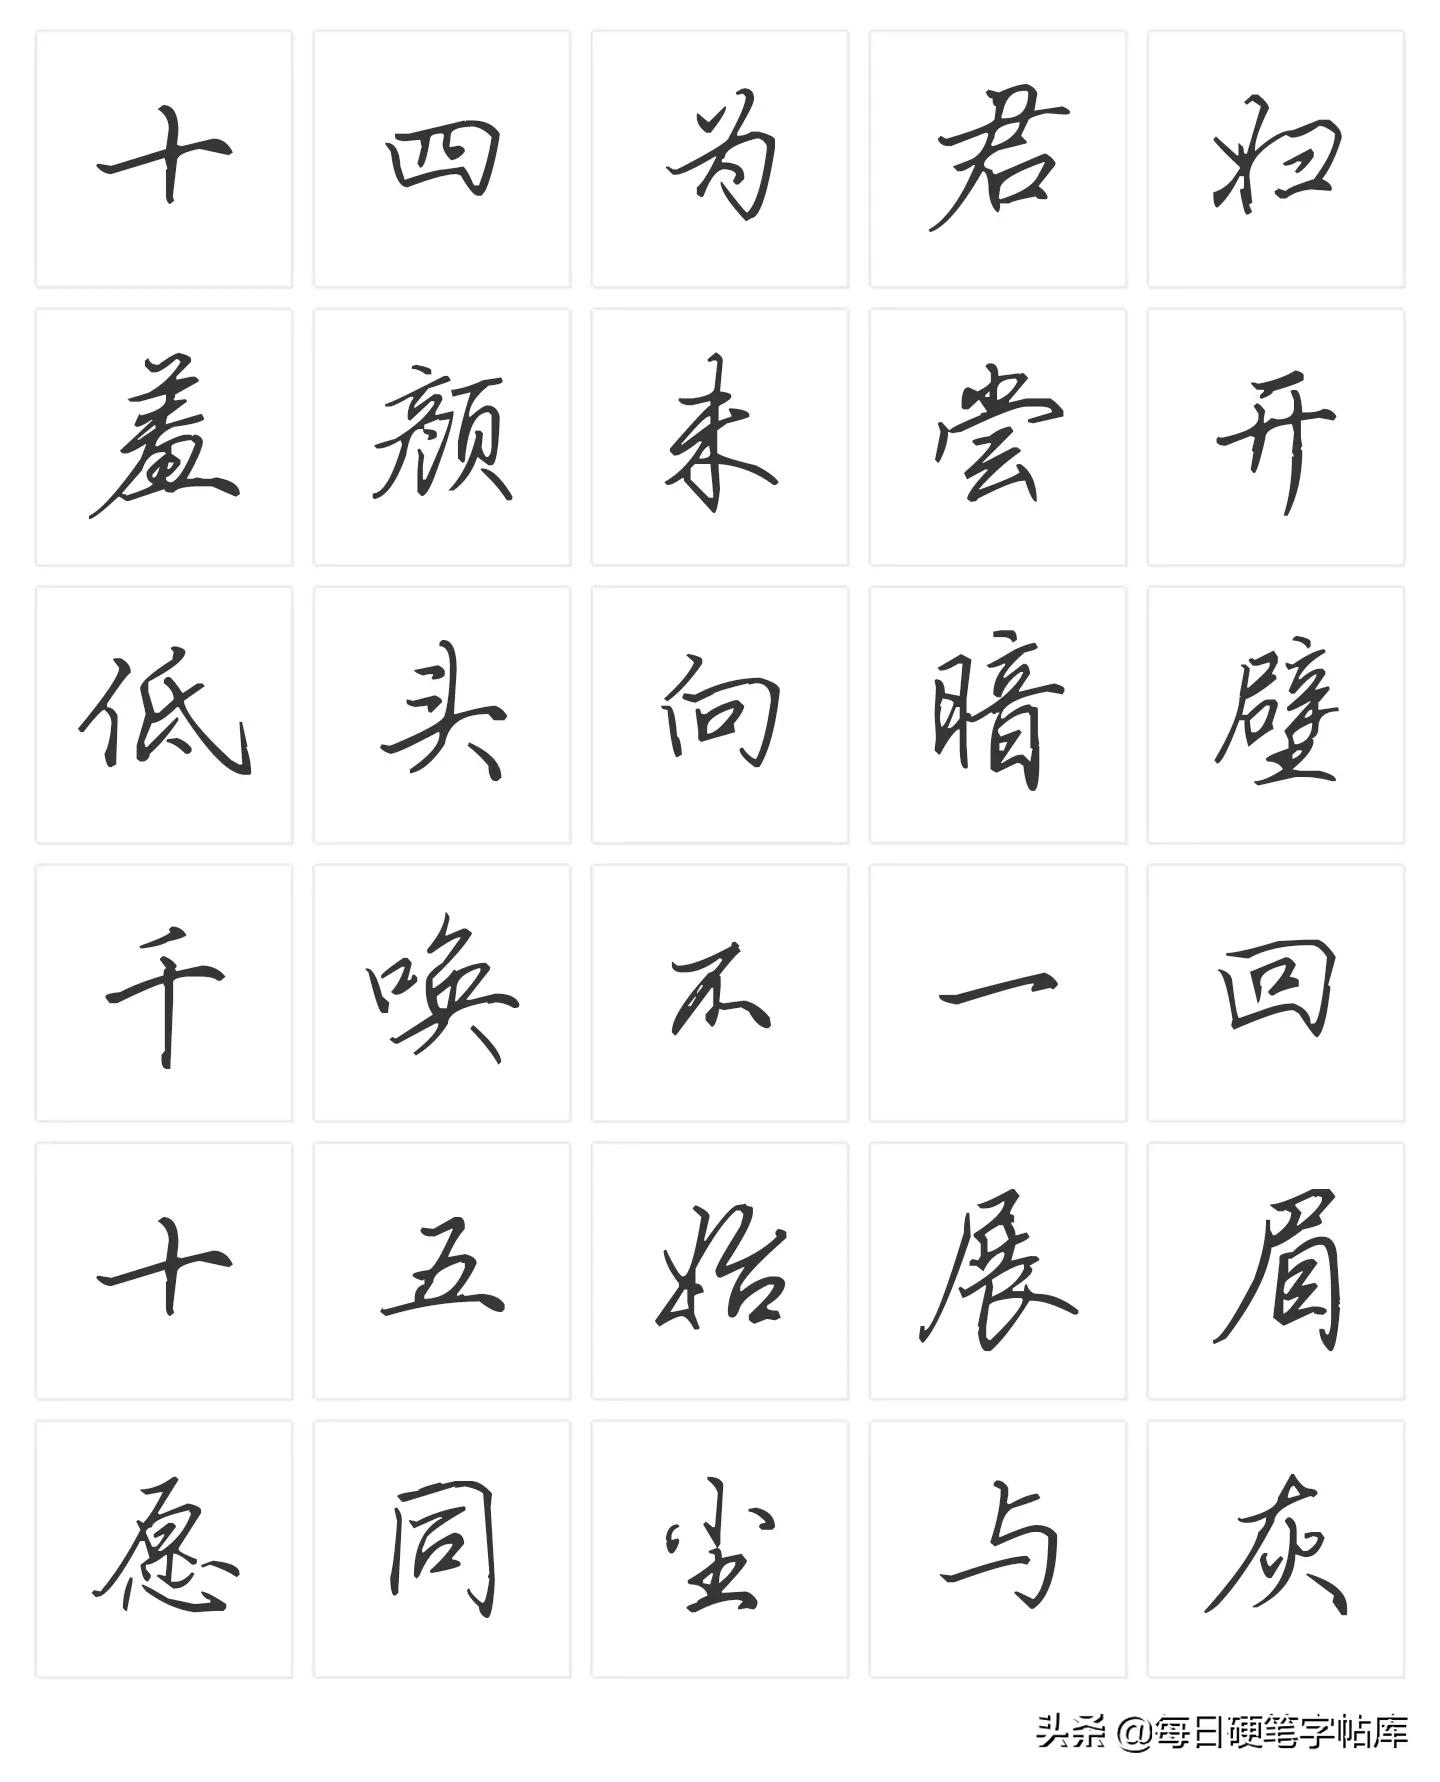 十四为君妇
羞颜未尝开
低头向暗壁
千唤不一回
十五始展眉
愿同尘与灰
头条 @每日硬笔字帖库